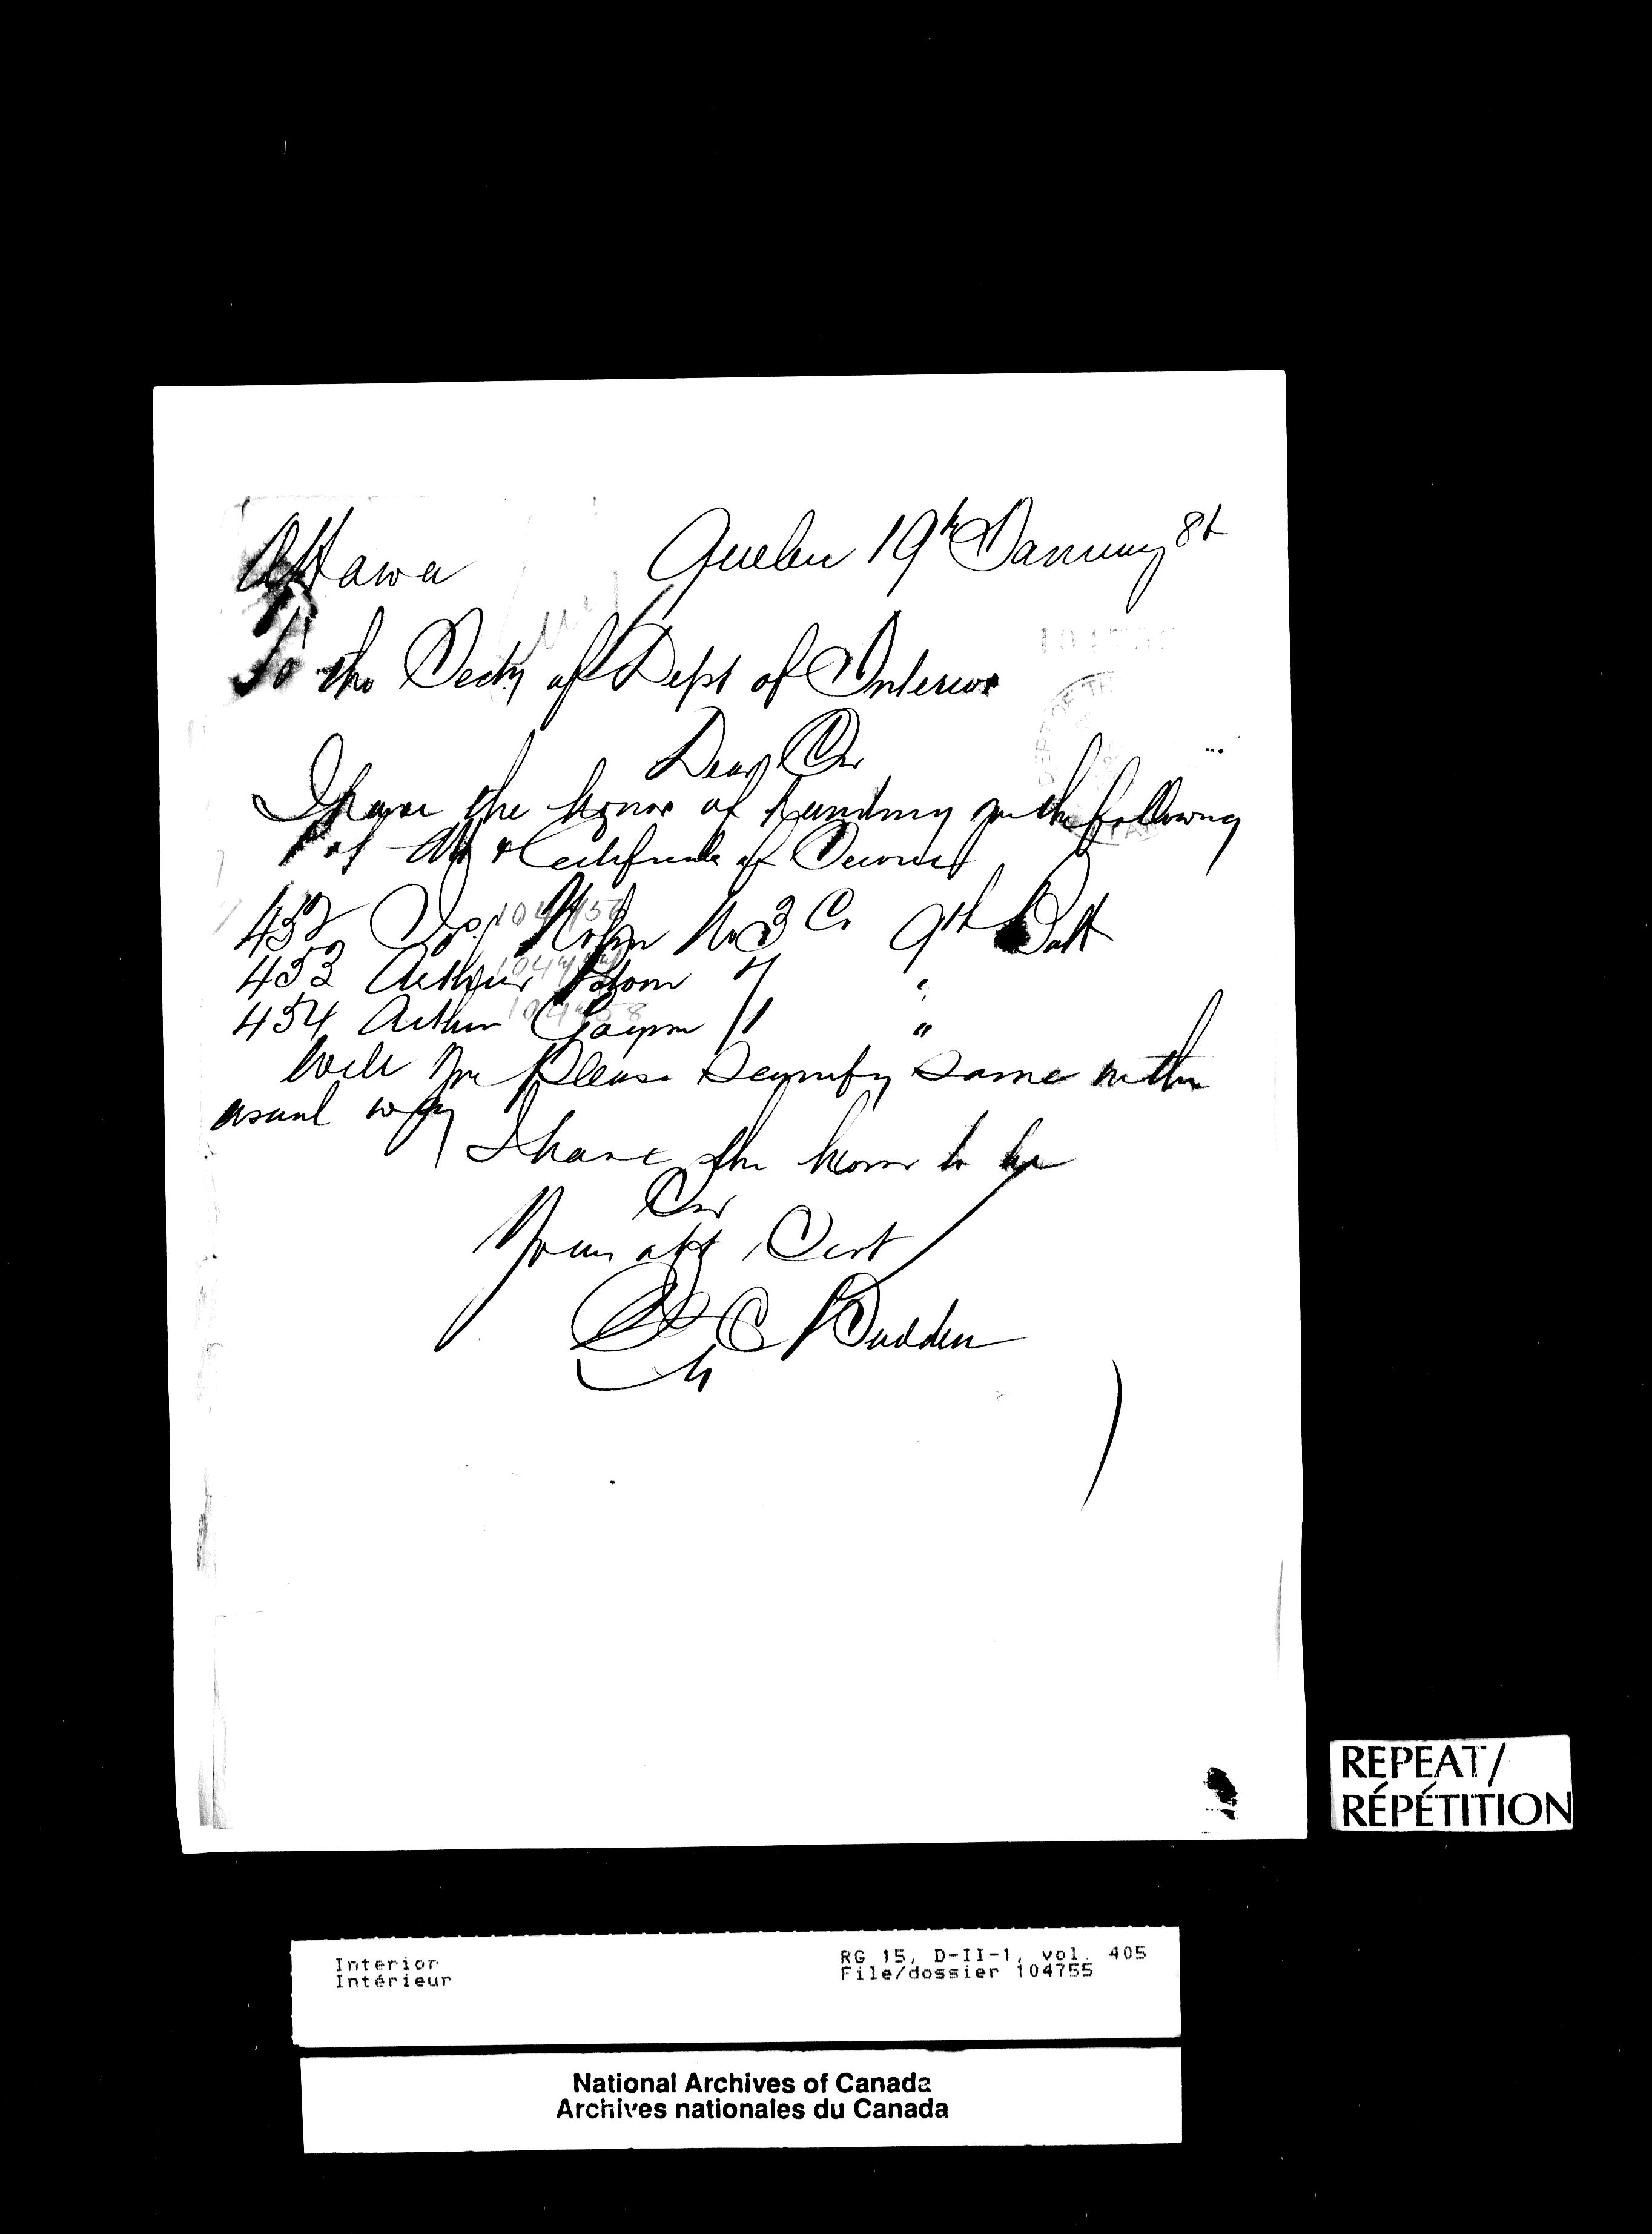 Ottawa Quebec 19th January 86
To the Secty of Dept of Interior
Dear Sir
I have the honor of handing you the following
P of Att & Certificate of Service
432 No 3 Co 9th Batt
433 Arthur " "
434 Arthur " "
Will you please Signify same in the
usual way
I have the honor to be
Sir
Your obt Sert
C Budden
REPEAT/
RÉPÉTITION
Interior RG 15, D-II-1, vol. 405
Intérieur File/dossier 104755
National Archives of Canada
Archives nationales du Canada